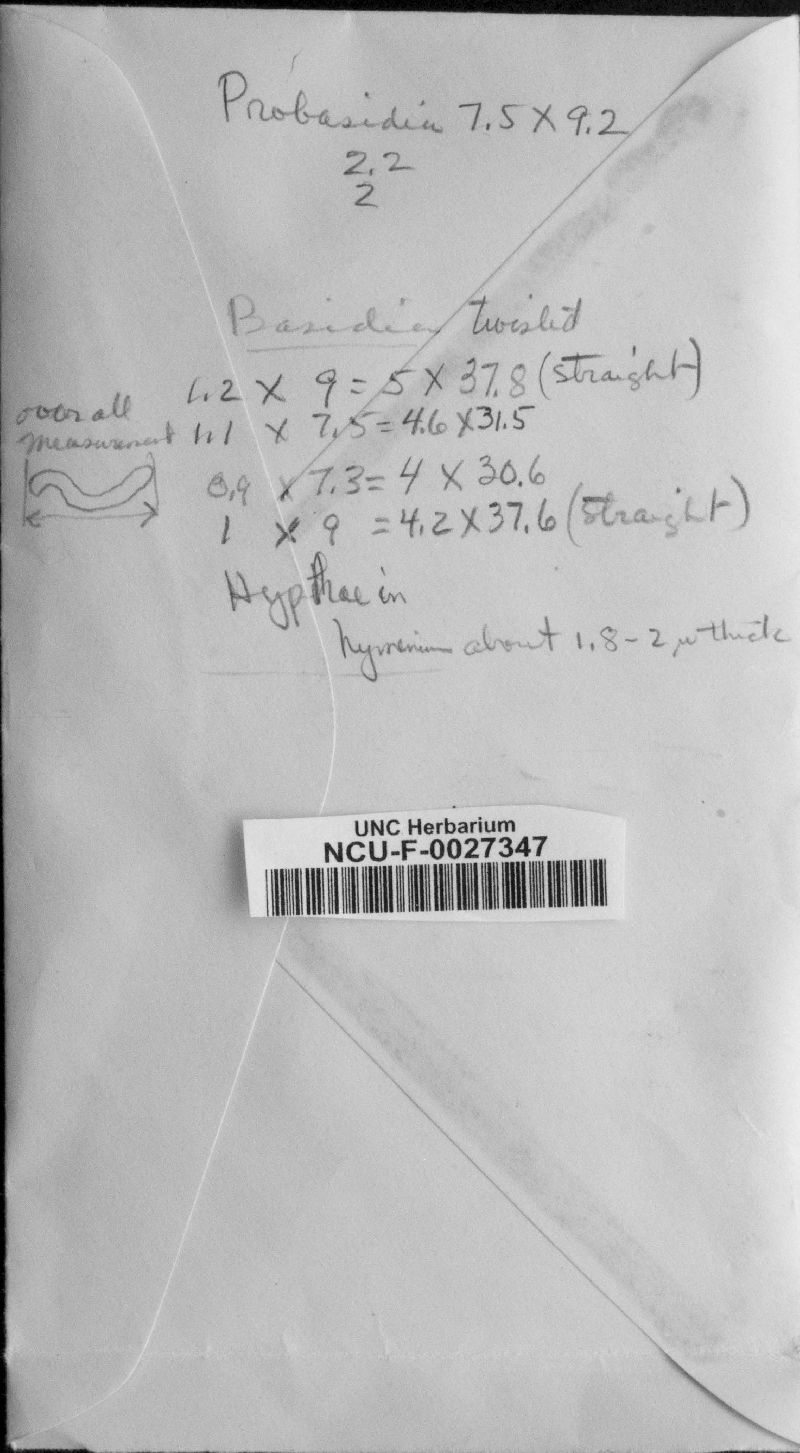 Probasidia 7.5 X 9.2
2.2
2
Basidia twisted
1.2 X 9 = 5 X 37.8 (straight)
overall
measurement
1.1 X 7.5 = 4.6 X 31.5
0.9 X 7.3 = 4 X 30.6
1 X 9 = 4.2 X 37.6 (straight)
Hypthae in
hymenium about 1.8 - 2 µ thick
UNC Herbarium
NCU-F-0027347